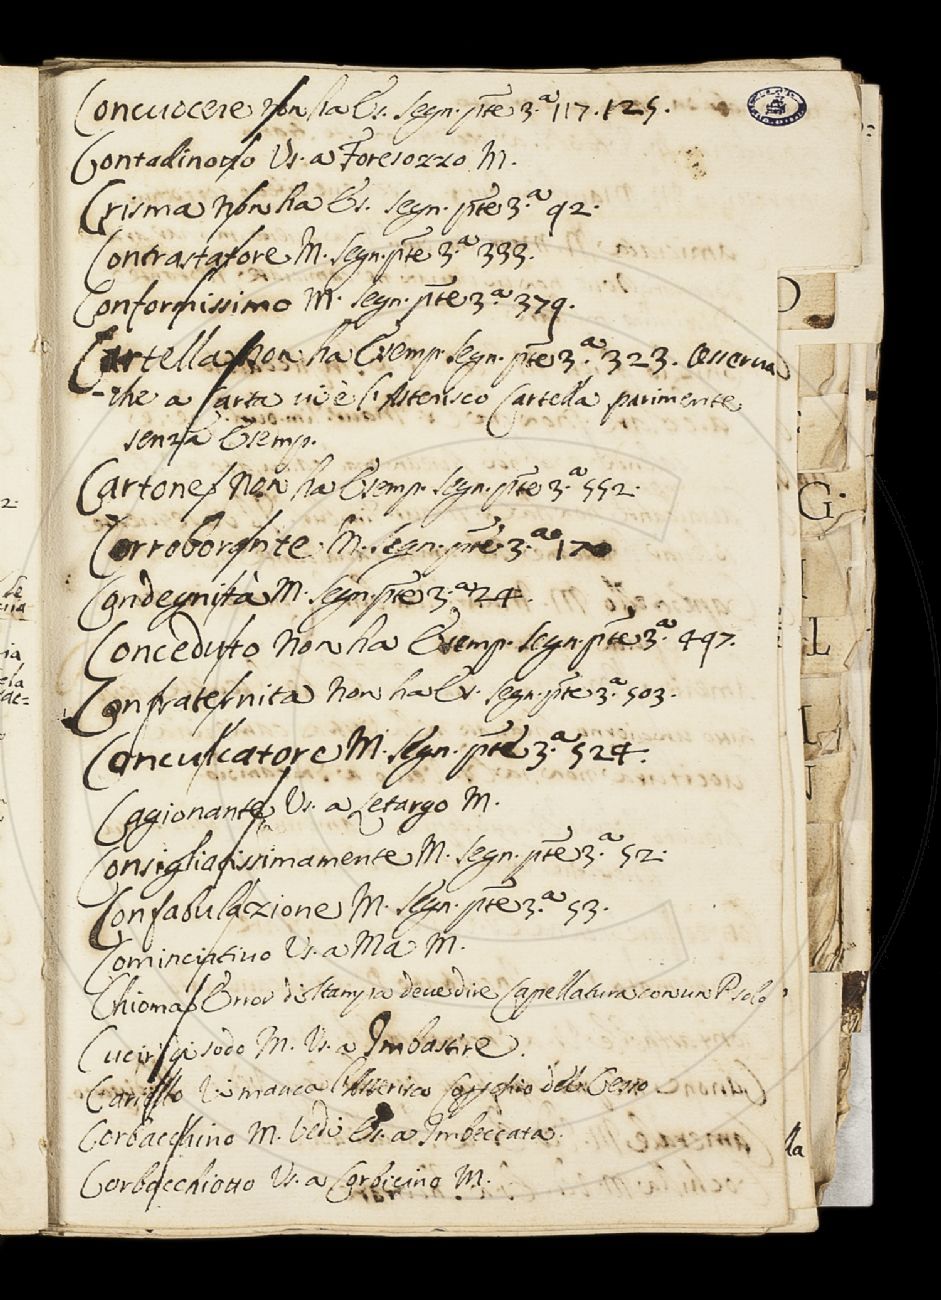 Concuocere non ha Es. Segn. pte 3.ª 117. 125.
Contadinotto Vs. a Foresozzo M.
Crisma non ha Es. Segn. pte 3.ª 92.
Contrastatore M. Segn. pte 3.ª 333.
Conformissimo M. Segn. pte 3.ª 379.
Cartella non ha Esemp. Segn. pte 3.ª 323. Osserva
-che a Carta vi è l'Asterisco Cartella parimente
senza Esemp.
Cartone non ha Esemp. Segn. pte 3.ª 552.
Corroborante M. Segn. pte 3.ª 170
Condegnità M. Segn. pte 3.ª 424.
Conceduto non ha Esemp. Segn. pte 3.ª 497.
Confraternita non ha Es. Segn. pte 3.ª 503.
Conculcatore M. Segn. pte 3.ª 524.
Cagionante Vs. a Letargo M.
Consigliatissimamente M. Segn. pte 3.ª 52.
Confabulazione M. Segn. pte 3.ª 53.
Comincintivo Vs. a Ma M.
Chioma Error di Stampa deve dire Capellatura con un P solo
Cucir a sodo M. Vs. a Imbastire.
Vi manca l'Asterisco
Corbacchino M. Vedi Es. a Imbeccata.
Corbacchiotto Vs. a Corbicino M.
G
L
lla